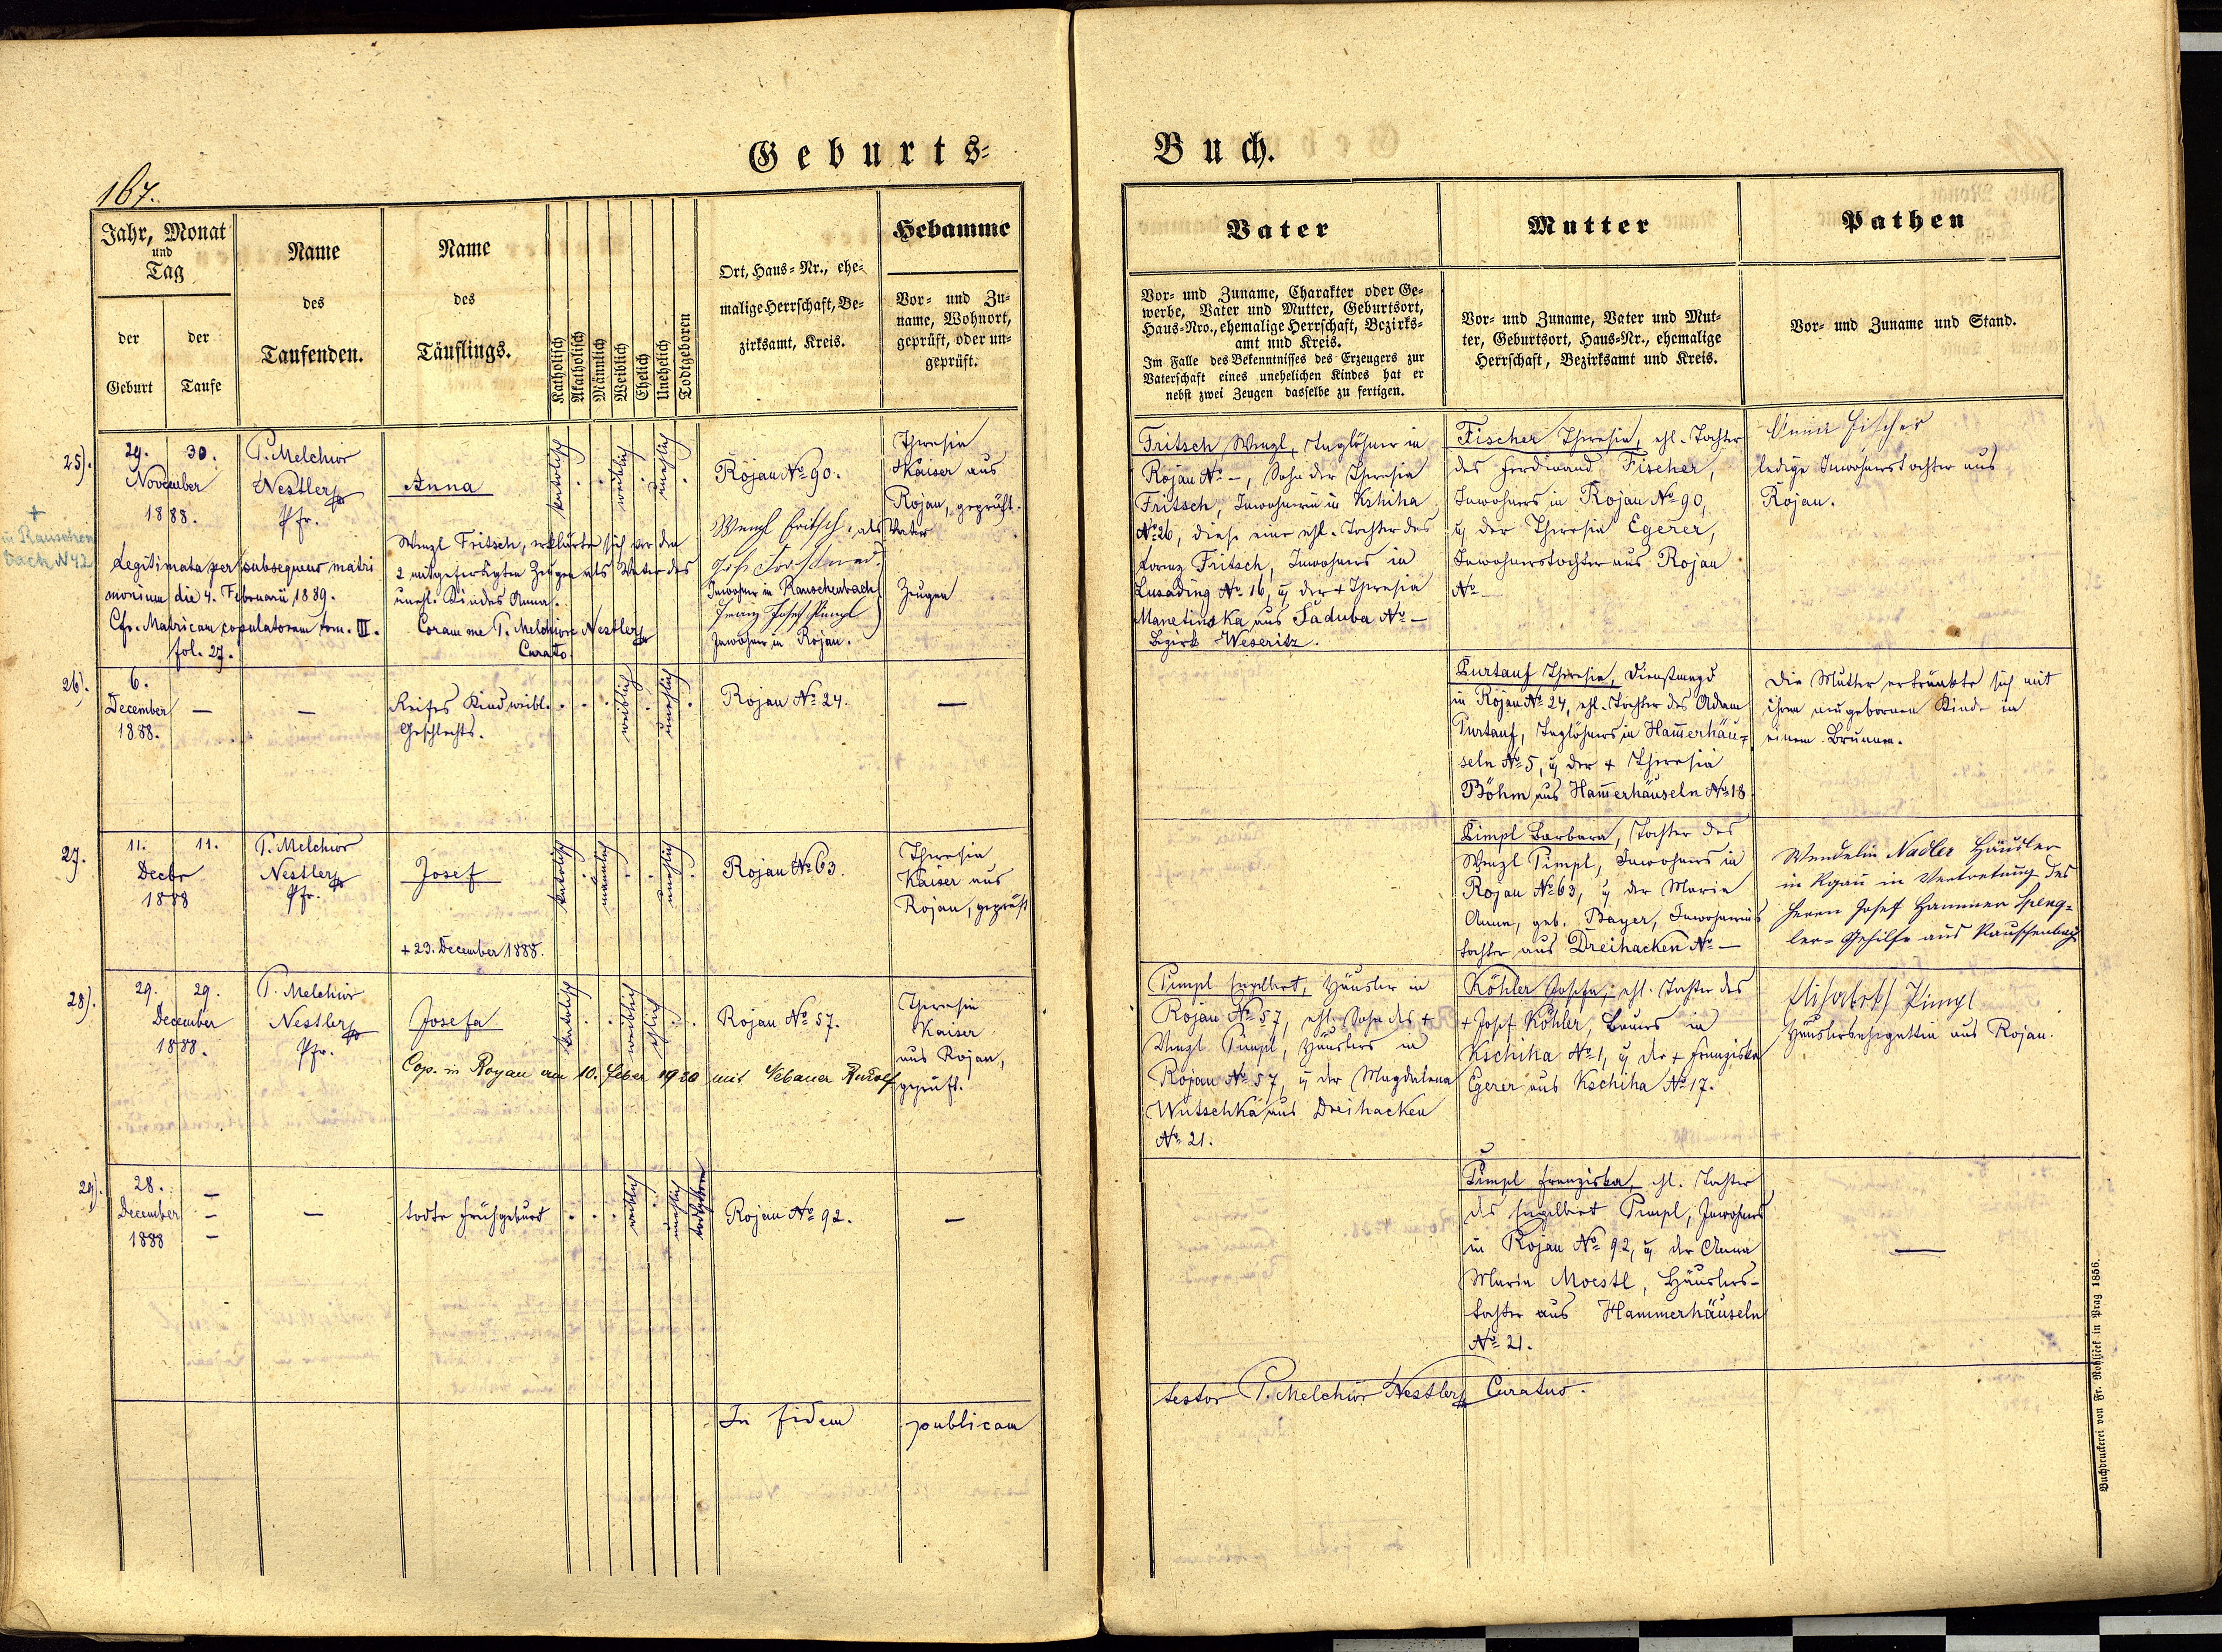 Geburts-
Buch.
167.
Jahr, Monat
und
Tag
der
Geburt
der
Taufe
Name
des
Taufenden.
Name
des
Täuflings.
Katholisch
Akatholisch
Männlich
Weiblich
Ehelich
Unehelich
Todtgeboren
Ort, Haus-Nr., ehe-
malige Herrschaft, Be-
zirksamt, Kreis.
Hebamme
Vor- und Zu-
name, Wohnort,
geprüft, oder un-
geprüft.
Vater
Vor- und Zuname, Charakter oder Ge-
werbe, Vater und Mutter, Geburtsort,
Haus-Nro., ehemalige Herrschaft, Bezirks-
amt und Kreis.
Im Falle des Bekenntnisses des Erzeugers zur
Vaterschaft eines unehelichen Kindes hat er
nebst zwei Zeugen dasselbe zu fertigen.
Mutter
Vor- und Zuname, Vater und Mut-
ter, Geburtsort, Haus-Nr., ehemalige
Herrschaft, Bezirksamt und Kreis.
Pathen
Vor- und Zuname und Stand.
25).
29. 30.
November
1888.
+
in Rauschen
bach N 42
P. Melchior
Nestler
Pfr.
Anna
katolisch
weiblich
unehlich
Rojau No 90.
Theresia
Kaiser aus
Rojau, geprüft.
Legitimata per subsequens matri
monium die 4. Februarii 1889.
Cfr. Matricam copulatorum tom. III.
fol. 27.
Wenzl Fritsch, erklärte sich vor den
2 mitgefertigten Zeugen als Vater des
unehl. Kindes Anna.
Coram me P. Melchiore Nestler
Curato.
Wenzl Fritsch, als Vater
Inwohner in Rauschenbach
Josef Pimpl
Inwohner in Rojau.
Zeugen
Fritsch Wenzl, Taglöhner in
Rojau No –, Sohn der Theresia
Fritsch, Inwohnerin in Kshiha
No 26, diese eine ehl. Tochter des
Lorenz Fritsch, Inwohners in
Lusading No 16, u der + Theresia
Manetinska aus Saduba No –
Bezirk Weseritz.
Fischer Theresia, ehl. Tochter
des Ferdinand Fischer,
Inwohners in Rojau No 90,
u der Theresia Egerer,
Inwohnerstochter aus Rojau
No –
Anna Fischer
ledige Inwohnerstochter aus
Rojau.
26).
6.
December
1888.
–
–
Reifes Kind weibl.
Geschlechts.
weiblich
unehlich
Rojau No 24.
–
Purtauf Theresia, Dienstmagd
in Rojau No 24, ehl. Tochter des Adam
Purtauf, Taglöhners in Ham̄erhäu-
seln No 5, u der + Theresia
Böhm aus Ham̄erhäuseln No 18
Die Mutter ertränkte sich mit
ihrem neugebornen Kinde in
einem Brunnen.
27.
11. 11.
Decbr
1888
P. Melchior
Nestler
Pfr.
Josef
+ 23. December 1888.
katolisch
männlich
unehlich
Rojau No 63.
Theresia
Kaiser aus
Rojau, geprüft
Pimpl Barbara, Tochter des
Wenzl Pimpl, Inwohners in
Rojau No 63, u der Maria
Anna, geb. Bayer, Inwohners
tochter aus Dreihacken No –
Wendelin Nadler Häusler
in Rojau in Vertretung des
Herrn Josef Hammer Speng-
ler-Gehilfe aus Rauschenbach
28).
29. 29.
December
1888.
P. Melchior
Nestler
Pfr.
Josefa
katolisch
weiblich
ehlich
Rojau No 57.
Theresia
Kaiser
aus Rojau,
geprüft.
Cop. in Royau am 10. Feber 1920 mit Nebauer Rudolf
Pimpl Engelbert, Häusler in
Rojau No 57, ehl. Sohn des +
Wenzl Pimpl, Häuslers in
Rojau No 57, u der Magdalena
Wutschka aus Dreihacken
No 21.
Köhler Josefa, ehl. Tochter des
+ Josef Köhler, Bauers in
Kschiha No 1, u der + Franziska
Egerer aus Kschiha No 17.
Elisabeth Pimpl
Häuslersehegattin aus Rojau.
29).
28.
December
1888
–
–
todte Frühgeburt
weiblich
unehlich
todtgeboren
Rojau No 92.
–
Pimpl Franziska, ehl. Tochter
des Engelbert Pimpl, Inwohners
in Rojau No 92, u der Anna
Maria Moestl, Häuslers-
tochter aus Hammerhäuseln
No 21.
–
In fidem publicam
testor P. Melchior Nestler Curatus.
Buchdruckerei von Fr. Rohliček in Prag 1856.